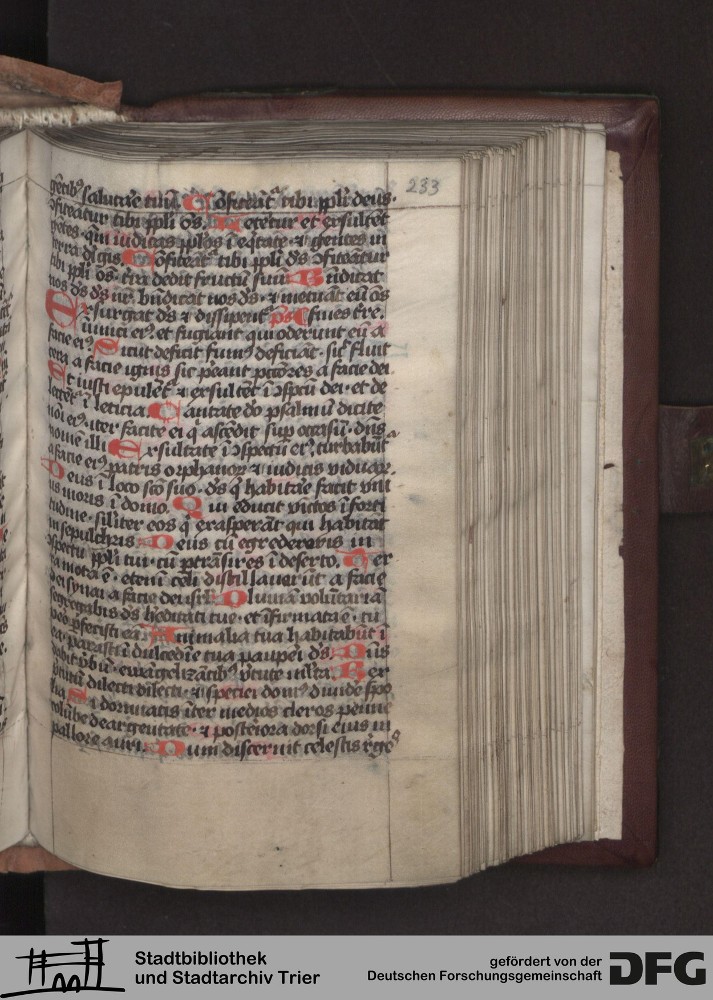 233
gētib⁹ salutāre tuū. Cōfiteāt᷑ tibi ppl̄i deus·
ꝯfiteātur tibi ppl̄i oēs. Letetur et exsultēt
gētes· qm̄ iudicas ppl̄os ī eq̄tate· ⁊ gentes in
terra dirigis. Cōfiteāt᷑ tibi ppl̄i ds̄ ꝯfiteātur
tibi ppl̄i oēs· t̄ra dedit fructū suū Bn̄dicat
nos ds̄ ds̄ nr̄ bn̄dicat nos ds̄· ⁊ metuāt eū oēs
fines t̄re. ps̄
Exsurgat ds̄ ⁊ dissipent᷑
inimici ei⁹· et fugiant qui oderunt eū a
facie ei⁹ Sicut deficit fum⁹ deficiāt· sic̄ fluit
cera a facie ignis sic pereant pctōres a facie dei
Et iusti epulēt᷑ ⁊ exsultēt ī ꝯspcū dei· et de
lectēt᷑ ī leticia. Cantate dō psalmū dicite
noī ei⁹· iter facite ei q̄ ascēdit sup̄ occasū· dn̄s
nomē illi Exsultate ī ꝯspectu ei⁹· turbabūt᷑
a facie ei⁹ patris orphanoꝝ ⁊ iudicis viduaꝝ.
Deus ī loco sctō suo· ds̄ q̄ habitare facit vni
us moris ī domo. Qui educit vīctos ī forti
tudine· siliter eos q̄ exasperāt qui habitāt
in sepulchris Deus cū egredereris in
ꝯspectu ppl̄i tui· cū ptrāsires ī deserto. Ter
ra mota ē· eteni celi distillauerūt a facie
dei synai a facie dei isrl̄ Pluuiā volūtariā
segregabis ds̄ hēditati tue· et īfirmata ē· tu
vero pfecisti eā. Animalia tua habitabūt ī
ea· parasti ī dulcedīe tua pauperi ds̄. Dn̄s
dabit ƀbū· ewāgelizātib⁹ v̄tute multa. Rex
v̄tutū dilecti dilecti· ⁊ speciei dom⁹ diuide spo
lia Si dormiatis īter medios cleros penne
colūbe deargentate· ⁊ posteriora dorsi eius in
pallore auri. Dum discernit celestis reges
Stadtbibliothek
und Stadtarchiv Trier
gefördert von der
Deutschen Forschungsgemeinschaft
DFG